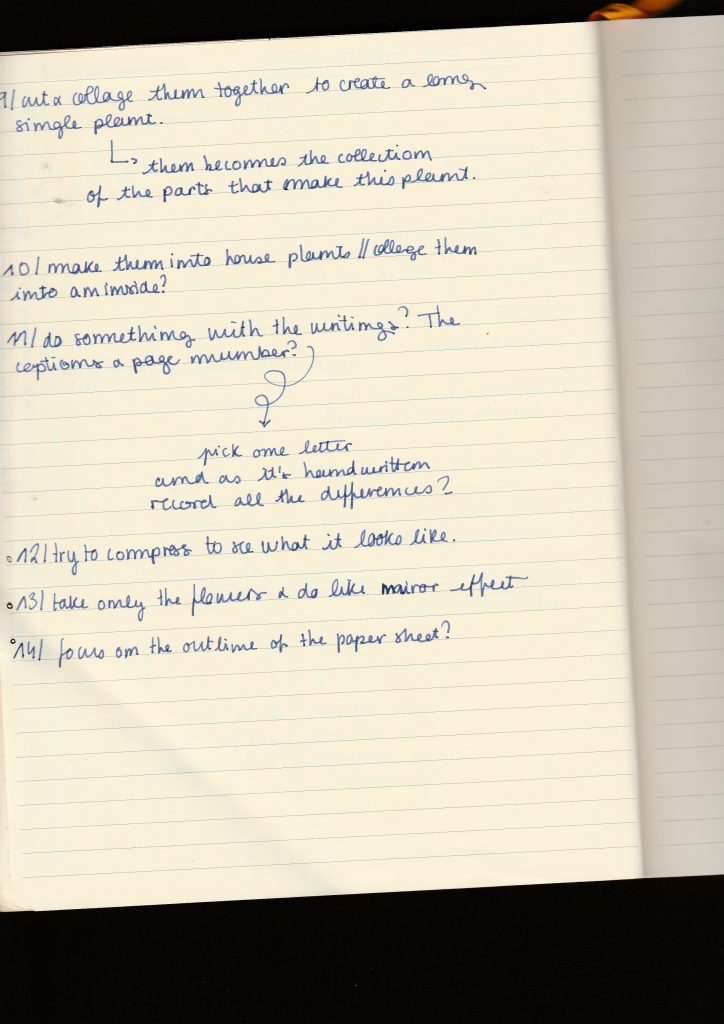 9/ cut & collage them together to create a long
simgle plant.
↳ them becomnes the collection
of the parts that make this plant.
10/ make them into house plants // collage them
into an inside?
11/ do something with the writings? The
captions & page number?
pick one letter
and as it's handwritten
record all the differences?
12/ try to compress to see what it looks like.
13/ take only the flowers & do like mirror effect
14/ focus on the outline of the paper sheet?